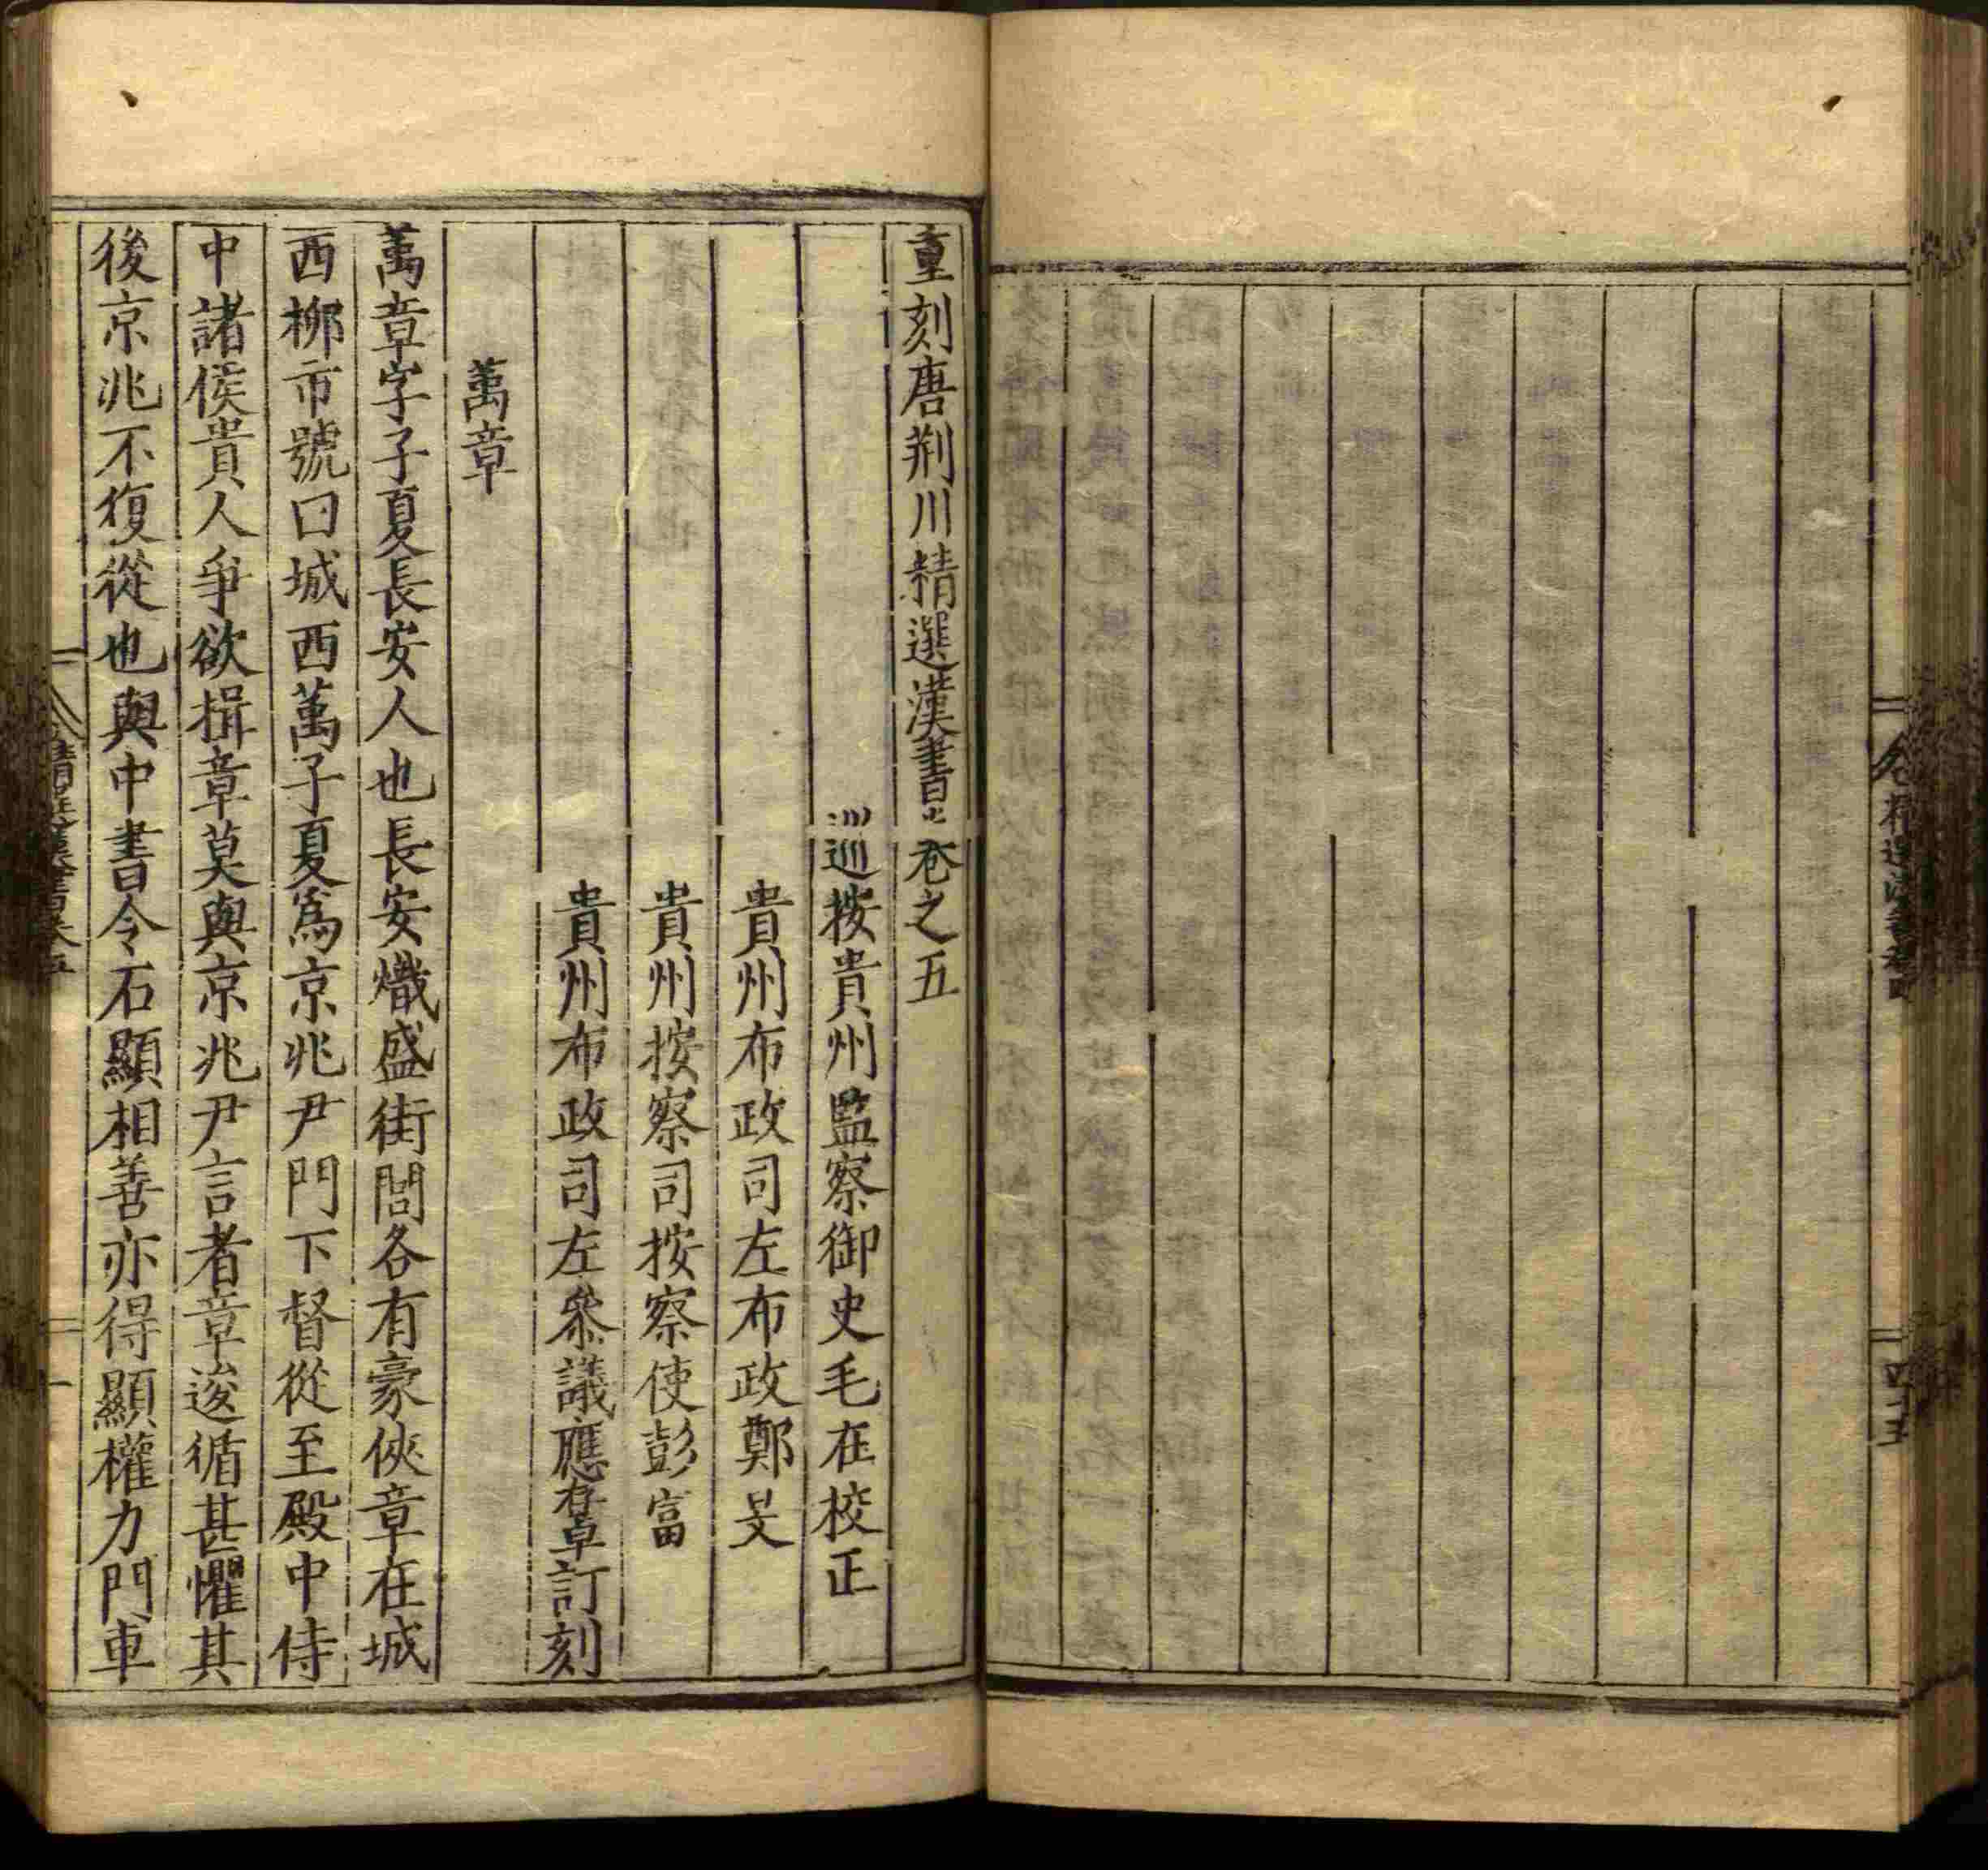 精選漢書卷四
四十五
重刻唐荆川精選漢書卷之五
巡按貴州監察御史毛在校正
貴州布政司左布政鄭旻
貴州按察司按察使彭富
貴州布政司左叅議應存卓訂刻
萬章
萬章字子夏長安人也長安熾盛街閭各有豪俠章在城
西柳市號曰城西萬子夏爲京兆尹門下督從至殿中侍
中諸侯貴人爭欲揖章莫與京兆尹言者章逡循甚懼其
後京兆不復從也與中書令石顯相善亦得顯權力門車
精選漢書卷五
一